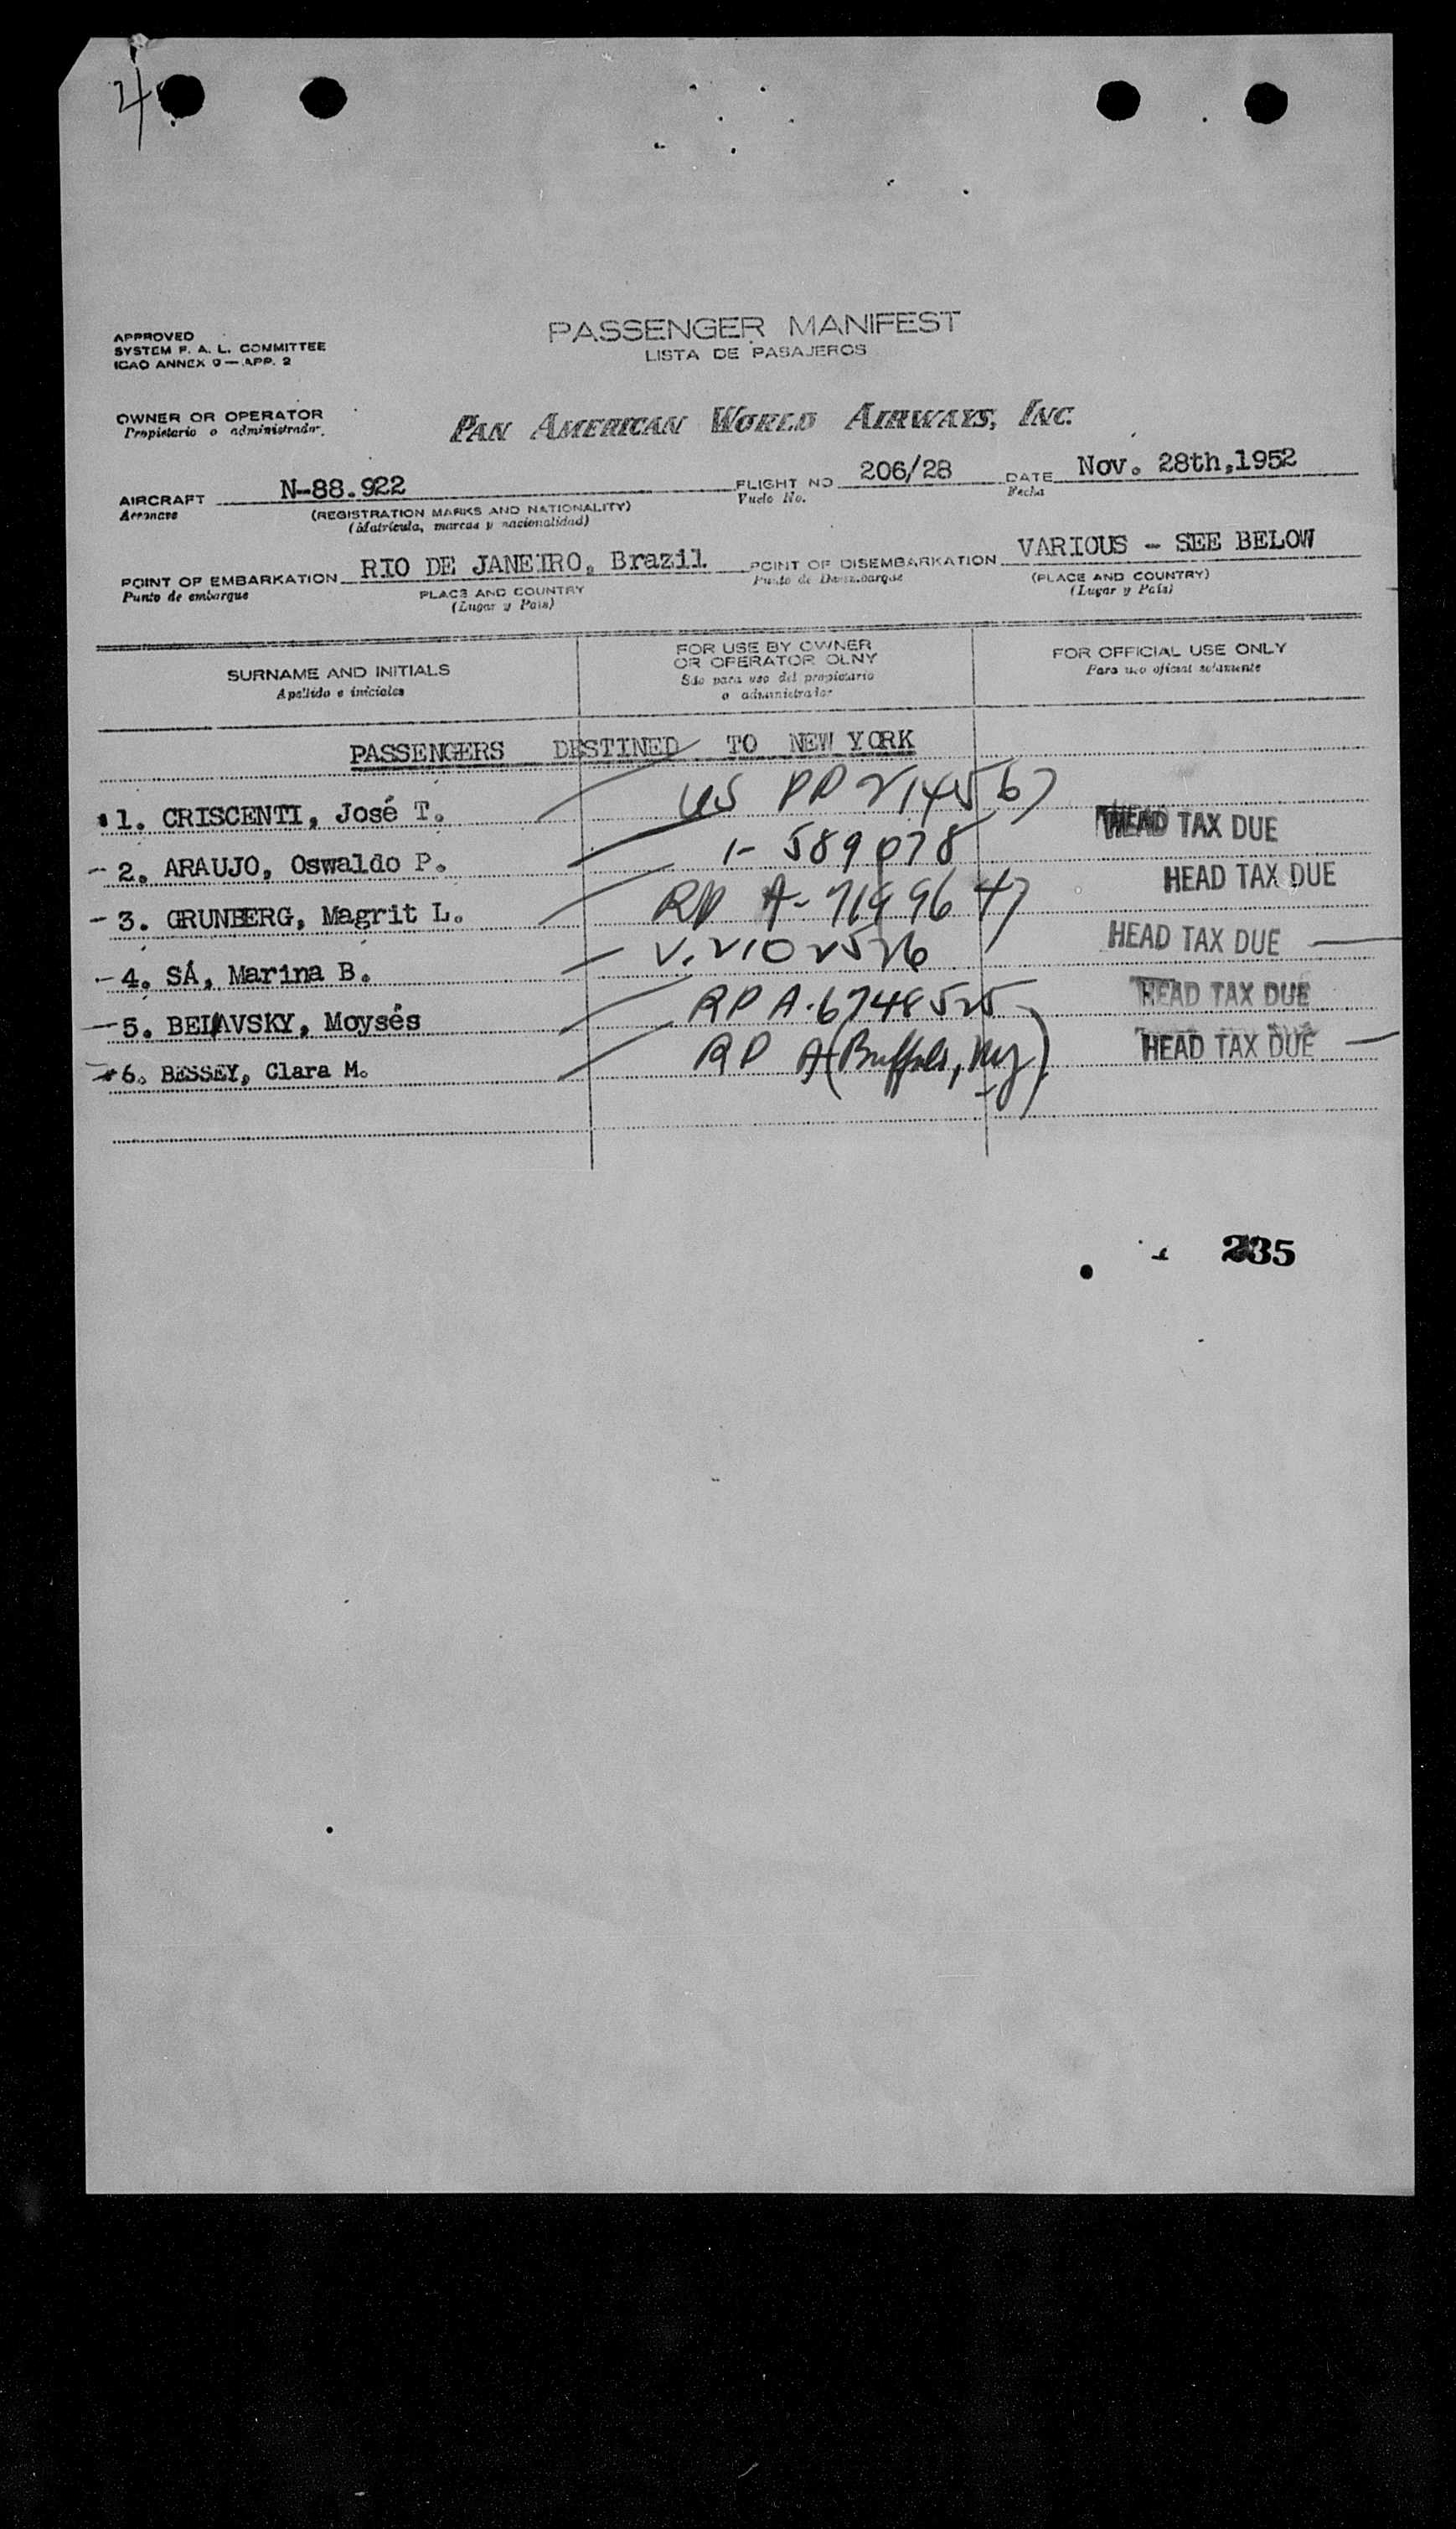 4
APPROVED
SYSTEM F. A. L. COMMITTEE
ICAO ANNEX 9 — APP. 2
PASSENGER MANIFEST
LISTA DE PASAJEROS
OWNER OR OPERATOR
Propietario o administrador.
PAN AMERICAN WORLD AIRWAYS, INC.
AIRCRAFT N-88.922 FLIGHT NO 206/28 DATE Nov. 28th,1952
(REGISTRATION MARKS AND NATIONALITY) Vuelo No. Fecha
(Matrícula, marcas y nacionalidad)
POINT OF EMBARKATION RIO DE JANEIRO, Brazil POINT OF DISEMBARKATION VARIOUS - SEE BELOW
Punto de embarque PLACE AND COUNTRY Punto de Desembarque (PLACE AND COUNTRY)
(Lugar y País) (Lugar y País)
SURNAME AND INITIALS
Apellido e iniciales
FOR USE BY OWNER
OR OPERATOR OLNY
Sólo para uso del propietario
o administrador
FOR OFFICIAL USE ONLY
Para uso oficial solamente
PASSENGERS DESTINED TO NEW YORK
1. CRISCENTI, José T. US PP 214567
HEAD TAX DUE
- 2. ARAUJO, Oswaldo P. 1- 589078
HEAD TAX DUE
- 3. GRUNBERG, Magrit L. RP A-7199647
HEAD TAX DUE
- 4. SÁ, Marina B. V. 2102526
HEAD TAX DUE
- 5. BELAVSKY, Moysés RP A-6748525
HEAD TAX DUE
6. BESSEY, Clara M. RP A (Buffalo, NY)
235